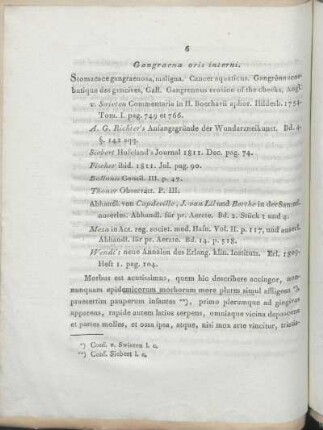 6
Gangraena oris interni.
Stomacace gangraenosa, maligna. Cancer aquaticus. Gangrène scorbutique des gencives, Gall. Gangrenous erosion of the cheeks, Angl.
v. Swieten Commentaria in H. Boerhavii aphor. Hilderb. 1754.
Tom. I. pag. 749 et 766.
A. G. Richter's Anfangsgründe der Wundarzneikunst. Bd. 4.
§.
Siebert Hufeland's Journal 1811. Dec. pag. 74.
Fischer ibid. 1811. Jul. pag. 90.
Consil. III. p. 47.
Observatt. P. III.
Abhandl. von Capdeville, J. van Lil und Berthe in der Samml.
auserles. Abhandl. für pr. Aerzte. Bd. 2. Stück 1 und 4.
in Act. reg. societ. med. Hafn. Vol. II. p. 117, und auserl.
Abhandl. für pr. Aerzte. Bd. 14. p. 518.
Wendt's neue Annalen des Erlang. klin. Instituts. Erl. 1809.
Heft 1. pag. 104.
Morbus est acutissimus, quem hic describere accingor, nonnunquam
epidemicorum morborum more plures simul affligens *),
praesertim pauperum infantes **), primo plerumque ad gingivas
apparens, rapide autem latius serpens, omniaque vicina depascens
et partes molles, et ossa ipsa, atque, nisi mox arte vincitur,
*) Conf. v. Swieten l. c.
**) Conf. Siebert l. c.